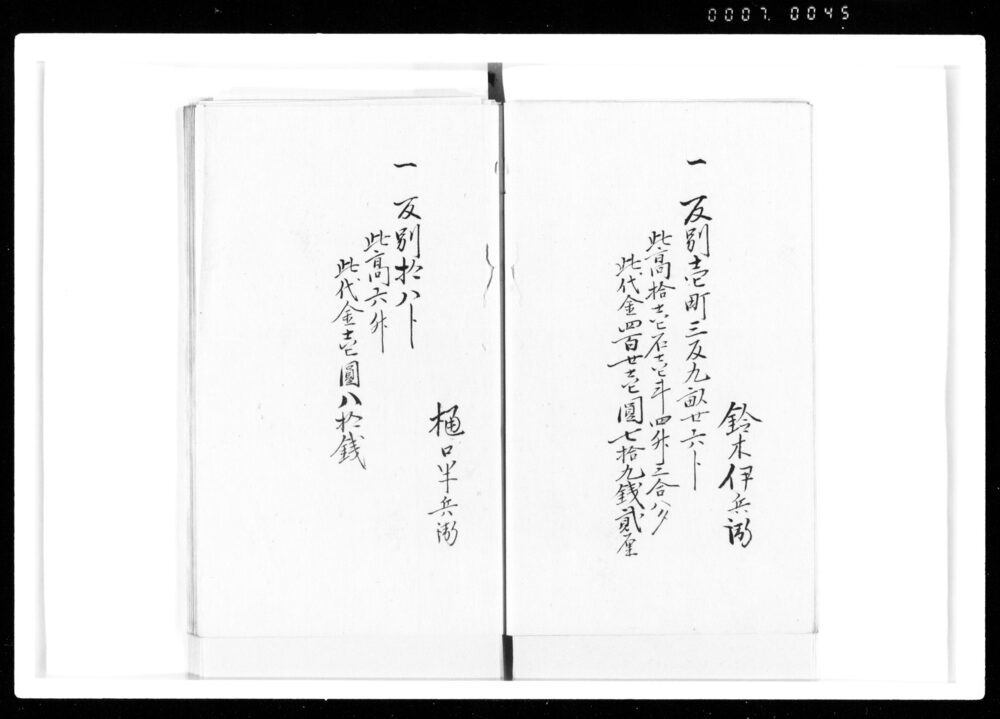 0007 0045
鈴木伊兵衛
一 反別壱町三反九畝廿六卜
此高拾壱石壱斗四升三合八夕
此代金四百廿壱圓七拾九銭貳厘
樋口半兵衛
一 反別拾八卜
此高六升
此代金壱圓八拾銭